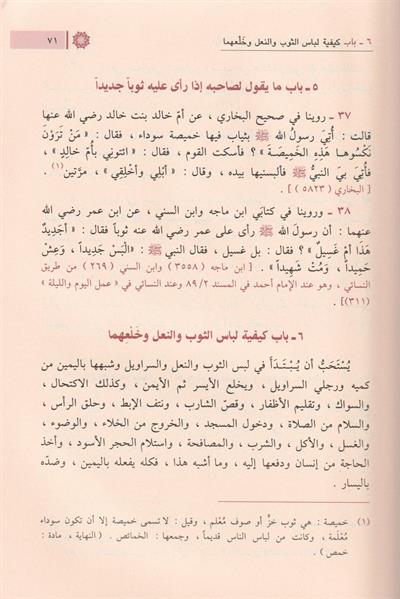 ٦ ـ باب كيفية لباس الثوب والنعل وخَلْعهما
٧١
٥ ـ باب ما يقول لصاحبه إذا رأى عليه ثوباً جديداً
٣٧ ـ روينا في صحيح البخاري ، عن أمّ خالد بنت خالد رضي الله عنها
قالت : أُتِيَ رسولُ اللهِ ﷺ بثياب فيها خميصة سوداء ، فقال : «مَنْ تَرَوْنَ
نَكْسُوهـا هَذِهِ الخَمِيصَةَ» ؟ فأسكت القوم ، فقال : «ائتوني بأُمّ خالدٍ» ،
فأُتِيَ بيَ النبيُّ ﷺ فألبسنيها بيده ، وقال : «أَبْلِي وأخْلِقِي» ، مرَّتين(١) .
[ البخاري (٥٨٢٣) ] .
٣٨ ـ وروينا في كتابَي ابن ماجه وابن السني ، عن ابن عمر رضي الله
عنهما : أن رسولَ الله ﷺ رأى على عمر رضي الله عنه ثوباً فقال : «أجَدِيدٌ
هَذَا أمْ غَسِيلٌ» ؟ فقال : بل غسيل ، فقال النبي ﷺ : «الْبَسْ جَدِيداً ، وَعِشْ
حَمِيداً ، وَمُتْ شَهِيداً» . [ ابن ماجه (٣٥٥٨) وابن السني (٢٦٩) من طريق
النسائي ، وهو عند الإمام أحمد في المسند ٨٩/٢ وعند النسائي في «عمل اليوم والليلة»
(٣١١)] .
٦ ـ باب كيفية لباس الثوب والنعل وخَلْعهما
يُسْتَحَبُّ أن يُبْتَـدَأَ في لبس الثوب والنعل والسراويل وشبهها باليمين من
كميه ورجلي السراويل ، ويخلع الأيسر ثم الأيمن ، وكذلك الاكتحال ،
والسواك ، وتقليم الأظفار ، وقصّ الشارب ، ونتف الإبط ، وحلق الرأس ،
والسلام من الصلاة ، ودخول المسجد ، والخروج من الخلاء ، والوضوء ،
والغسل ، والأكل ، والشرب ، والمصافحة ، واستلام الحجر الأسود ، وأخذ
الحاجة من إنسان ودفعها إليه ، وما أشبه هذا ، فكله يفعله باليمين ، وضدّه
باليسار .
(١) خميصة : هي ثوب خزّ أو صوف مُعْلم ، وقيل : لا تسمى خميصة إلا أن تكون سوداء
مُعْلَمة ، وكانت من لباس الناس قديماً ، وجمعها : الخمائص . ( النهاية ، مادة :
خمص ) .